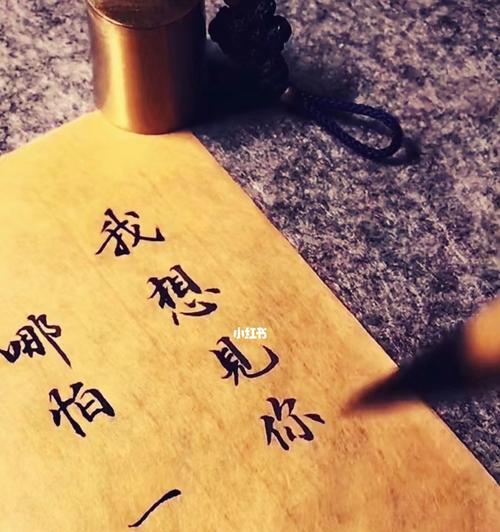 我想見你
哪怕一
小红书